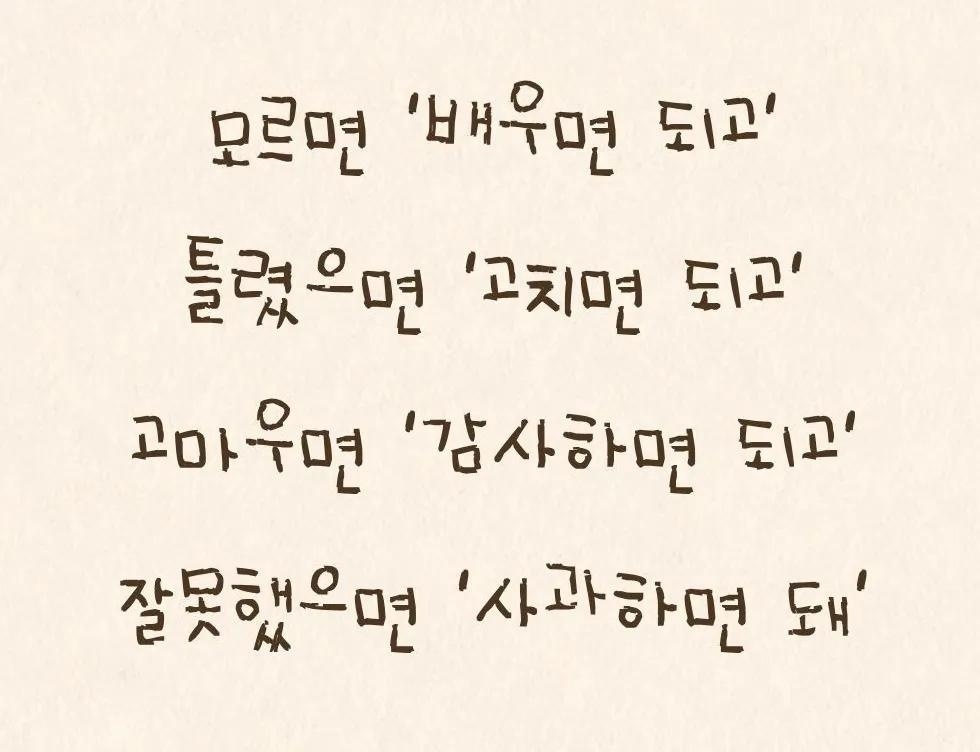 모르면 '배우면 되고'
틀렸으면 '고치면 되고'
고마우면 '감사하면 되고'
잘못했으면 '사과하면 돼'